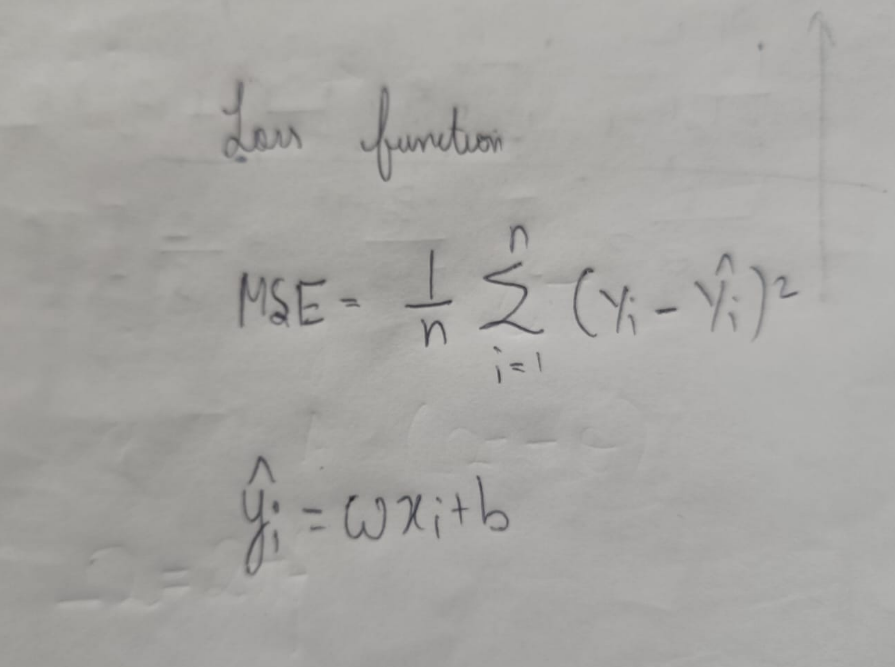 Loss function
MSE = 1/n Σ_{i=1}^{n} (yᵢ - ŷᵢ)²
ŷᵢ = ωxᵢ+b